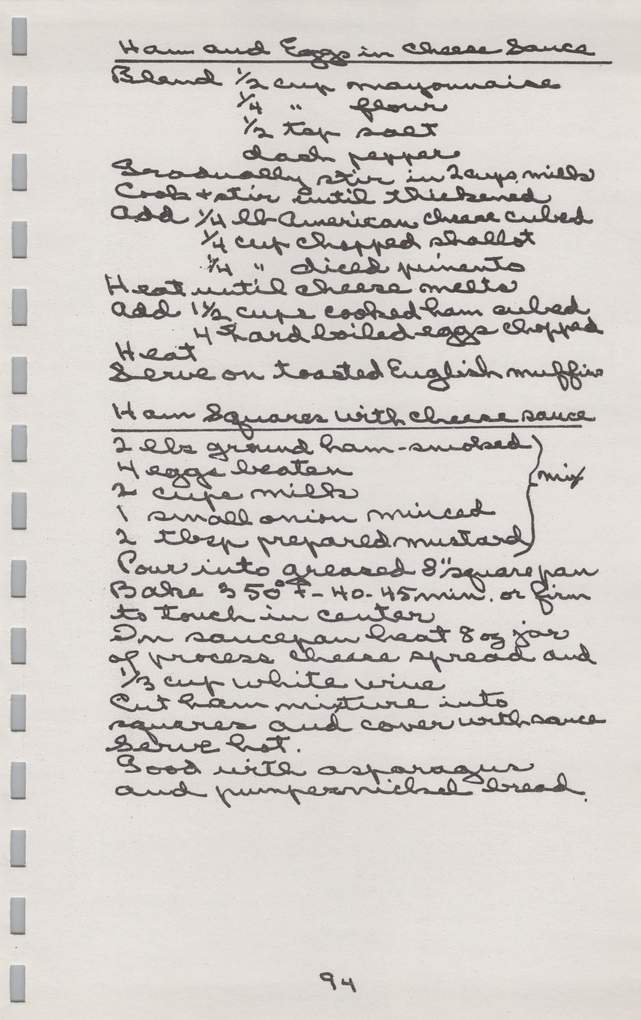 Ham and Eggs in Cheese Sauce
Blend 1/2 cup mayonnaise
1/4 " flour
1/2 tsp salt
dash pepper
Gradually stir in 2 cups milk
Cook + stir until thickened
Add 1/4 lb American cheese cubed
1/4 cup chopped shallot
1/4 " diced pimento
Heat until cheese melts
Add 1 1/2 cups cooked ham cubed
4 hard boiled eggs chopped
Heat
Serve on toasted English muffins
Ham Squares with cheese sauce
2 lbs ground ham-smoked
4 eggs beaten
2 cups milk
mix
1 small onion minced
2 tbsp prepared mustard
Pour into greased 8" square pan
Bake 350° F - 40-45 min. or firm
to touch in center
In saucepan heat 8 oz jar
of process cheese spread and
1/3 cup white wine
Cut ham mixture into
squares and cover with sauce
Serve hot.
Good with asparagus
and pumpernickel bread.
94